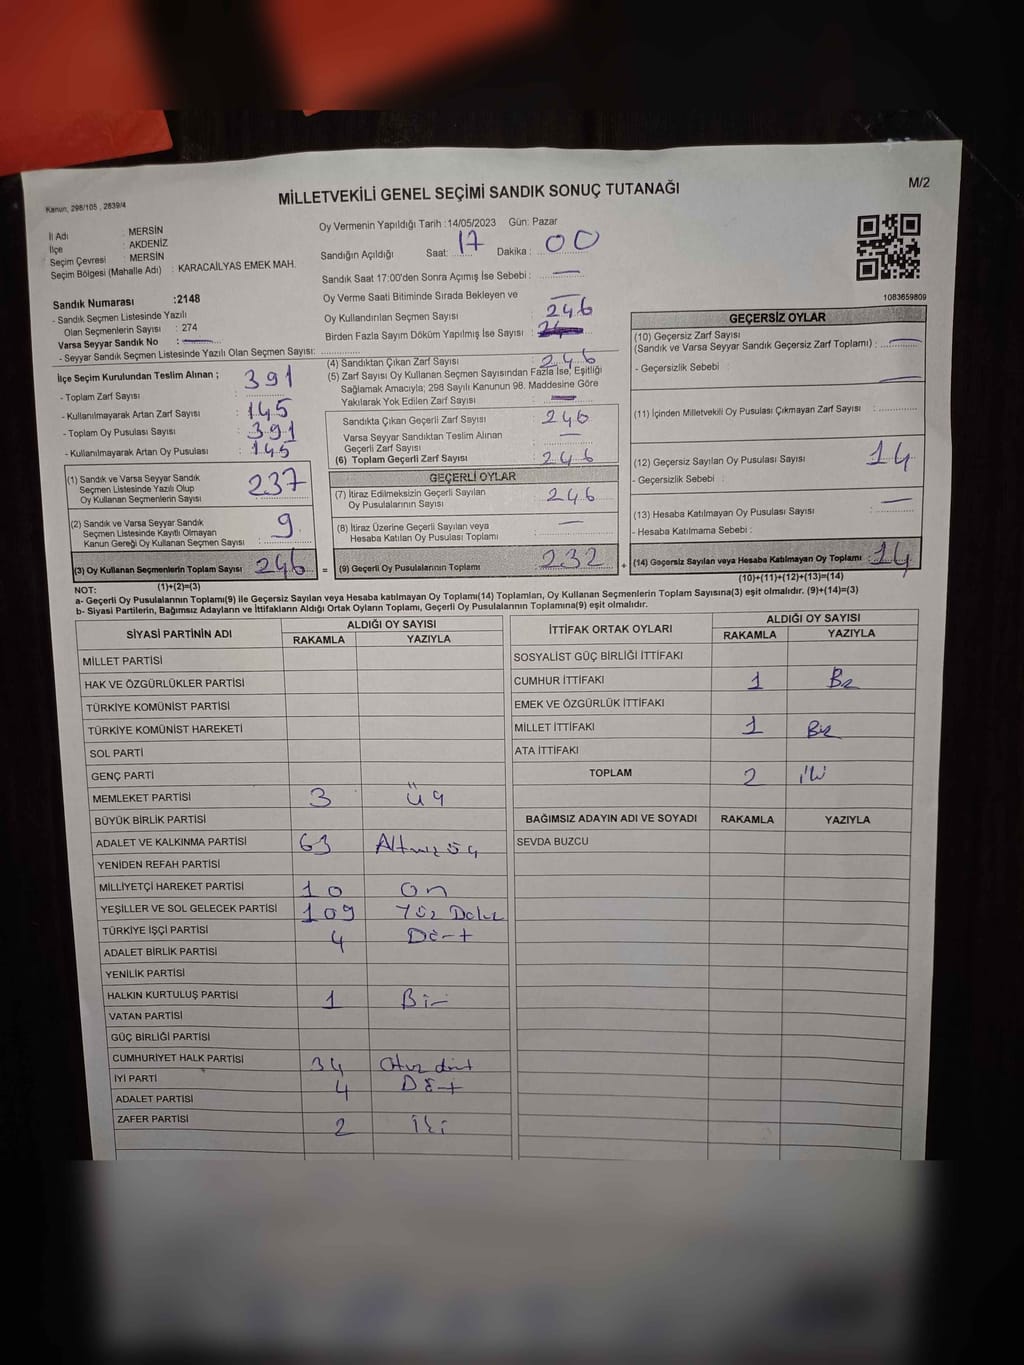 MİLLETVEKİLİ GENEL SEÇİMİ SANDIK SONUÇ TUTANAĞI
M/2
Kanun, 298/105 , 2839/4
İl Adı : MERSİN
İlçe : AKDENİZ
Seçim Çevresi : MERSİN
Seçim Bölgesi (Mahalle Adı) : KARACAİLYAS EMEK MAH.
Oy Vermenin Yapıldığı Tarih :14/05/2023 Gün: Pazar
Sandığın Açıldığı Saat: 17 Dakika : 00
Sandık Saat 17:00'den Sonra Açımış İse Sebebi : —
1083659809
Sandık Numarası :2148
- Sandık Seçmen Listesinde Yazılı
Olan Seçmenlerin Sayısı : 274
Varsa Seyyar Sandık No : —
- Seyyar Sandık Seçmen Listesinde Yazılı Olan Seçmen Sayısı:
Oy Verme Saati Bitiminde Sırada Bekleyen ve —
Oy Kullandırılan Seçmen Sayısı : 246
Birden Fazla Sayım Döküm Yapılmış İse Sayısı :
İlçe Seçim Kurulundan Teslim Alınan ;
- Toplam Zarf Sayısı : 391
- Kullanılmayarak Artan Zarf Sayısı : 145
- Toplam Oy Pusulası Sayısı : 391
- Kullanılmayarak Artan Oy Pusulası : 145
(1) Sandık ve Varsa Seyyar Sandık
Seçmen Listesinde Yazılı Olup
Oy Kullanan Seçmenlerin Sayısı : 237
(2) Sandık ve Varsa Seyyar Sandık
Seçmen Listesinde Kayıtlı Olmayan
Kanun Gereği Oy Kullanan Seçmen Sayısı : 9
(3) Oy Kullanan Seçmenlerin Toplam Sayısı : 246
(1)+(2)=(3)
(4) Sandıktan Çıkan Zarf Sayısı : 246
(5) Zarf Sayısı Oy Kullanan Seçmen Sayısından Fazla İse, Eşitliği
Sağlamak Amacıyla; 298 Sayılı Kanunun 98. Maddesine Göre
Yakılarak Yok Edilen Zarf Sayısı : —
Sandıkta Çıkan Geçerli Zarf Sayısı : 246
Varsa Seyyar Sandıktan Teslim Alınan
Geçerli Zarf Sayısı : —
(6) Toplam Geçerli Zarf Sayısı : 246
GEÇERLİ OYLAR
(7) İtiraz Edilmeksizin Geçerli Sayılan
Oy Pusulalarının Sayısı : 246
(8) İtiraz Üzerine Geçerli Sayılan veya
Hesaba Katılan Oy Pusulası Toplamı : —
= (9) Geçerli Oy Pusulalarının Toplamı : 232
GEÇERSİZ OYLAR
(10) Geçersiz Zarf Sayısı
(Sandık ve Varsa Seyyar Sandık Geçersiz Zarf Toplamı) : —
- Geçersizlik Sebebi : —
(11) İçinden Milletvekili Oy Pusulası Çıkmayan Zarf Sayısı :
(12) Geçersiz Sayılan Oy Pusulası Sayısı : 14
- Geçersizlik Sebebi :
(13) Hesaba Katılmayan Oy Pusulası Sayısı : —
- Hesaba Katılmama Sebebi :
+ (14) Geçersiz Sayılan veya Hesaba Katılmayan Oy Toplamı : 14
(10)+(11)+(12)+(13)=(14)
NOT:
a- Geçerli Oy Pusulalarının Toplamı(9) ile Geçersiz Sayılan veya Hesaba Katılmayan Oy Toplamı(14) Toplamları, Oy Kullanan Seçmenlerin Toplam Sayısına(3) eşit olmalıdır. (9)+(14)=(3)
b- Siyasi Partilerin, Bağımsız Adayların ve İttifakların Aldığı Ortak Oyların Toplamı, Geçerli Oy Pusulalarının Toplamına(9) eşit olmalıdır.
SİYASİ PARTİNİN ADI ALDIĞI OY SAYISI
RAKAMLA YAZIYLA
MİLLET PARTİSİ
HAK VE ÖZGÜRLÜKLER PARTİSİ
TÜRKİYE KOMÜNİST PARTİSİ
TÜRKİYE KOMÜNİST HAREKETİ
SOL PARTİ
GENÇ PARTİ
MEMLEKET PARTİSİ 3 üç
BÜYÜK BİRLİK PARTİSİ
ADALET VE KALKINMA PARTİSİ 63 Altmış üç
YENİDEN REFAH PARTİSİ
MİLLİYETÇİ HAREKET PARTİSİ 10 On
YEŞİLLER VE SOL GELECEK PARTİSİ 109 Yüz Dokuz
TÜRKİYE İŞÇİ PARTİSİ 4 Dört
ADALET BİRLİK PARTİSİ
YENİLİK PARTİSİ
HALKIN KURTULUŞ PARTİSİ 1 Bir
VATAN PARTİSİ
GÜÇ BİRLİĞİ PARTİSİ
CUMHURİYET HALK PARTİSİ 34 Otuz dört
İYİ PARTİ 4 Dört
ADALET PARTİSİ
ZAFER PARTİSİ 2 İki
İTTİFAK ORTAK OYLARI ALDIĞI OY SAYISI
RAKAMLA YAZIYLA
SOSYALİST GÜÇ BİRLİĞİ İTTİFAKI
CUMHUR İTTİFAKI 1 Bir
EMEK VE ÖZGÜRLÜK İTTİFAKI
MİLLET İTTİFAKI 1 Bir
ATA İTTİFAKI
TOPLAM 2 iki
BAĞIMSIZ ADAYIN ADI VE SOYADI RAKAMLA YAZIYLA
SEVDA BUZCU